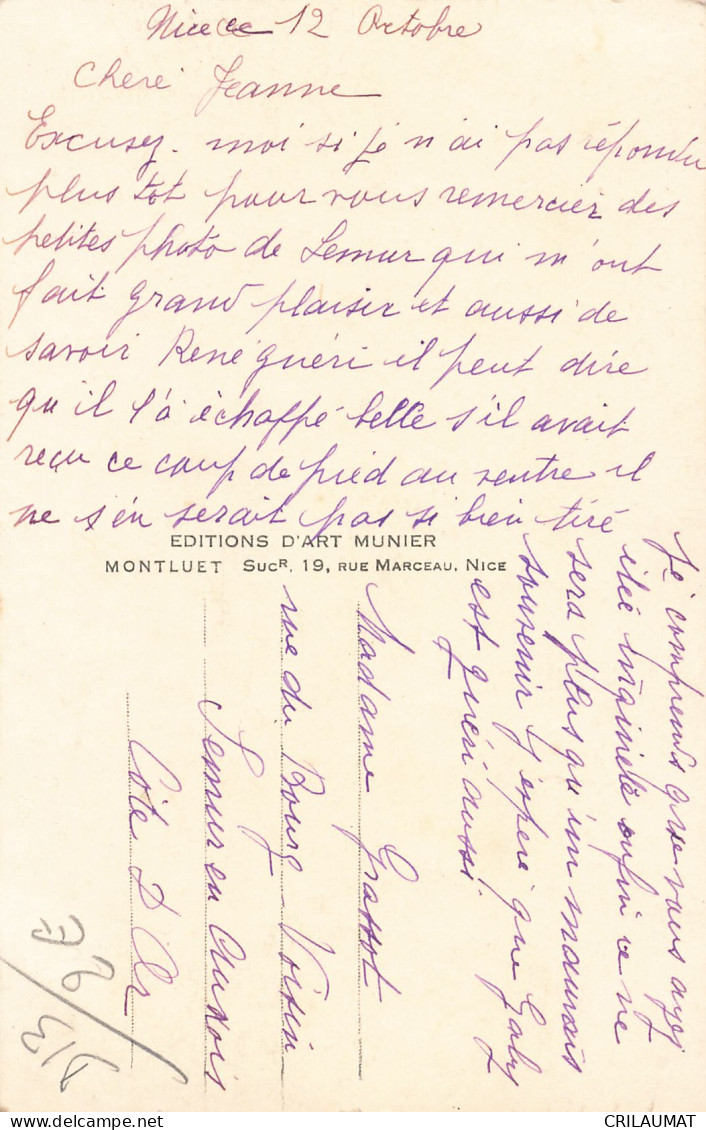 Nice ce 12 Octobre
Chere Jeanne
Excusez-moi si je n'ai pas répondu
plus tot pour vous remercier des
petites photo de Semur qui m'ont
fait grand plaisir et aussi de
savoir René guéri il peut dire
qu'il l'a échappé belle s'il avait
reçu ce coup de pied au ventre il
ne s'en serait pas si bien tiré
Je comprends que vous ayez
étée inquiete enfin ce ne
sera plus qu'un mauvais
souvenir J'espere que Gaby
est guéri aussi.
EDITIONS D'ART MUNIER
MONTLUET SucR, 19, RUE MARCEAU, NICE
Madame Grassot
rue du Bourg-Voisin
Semur en Auxois
Côte D'Or
CRILAUMAT